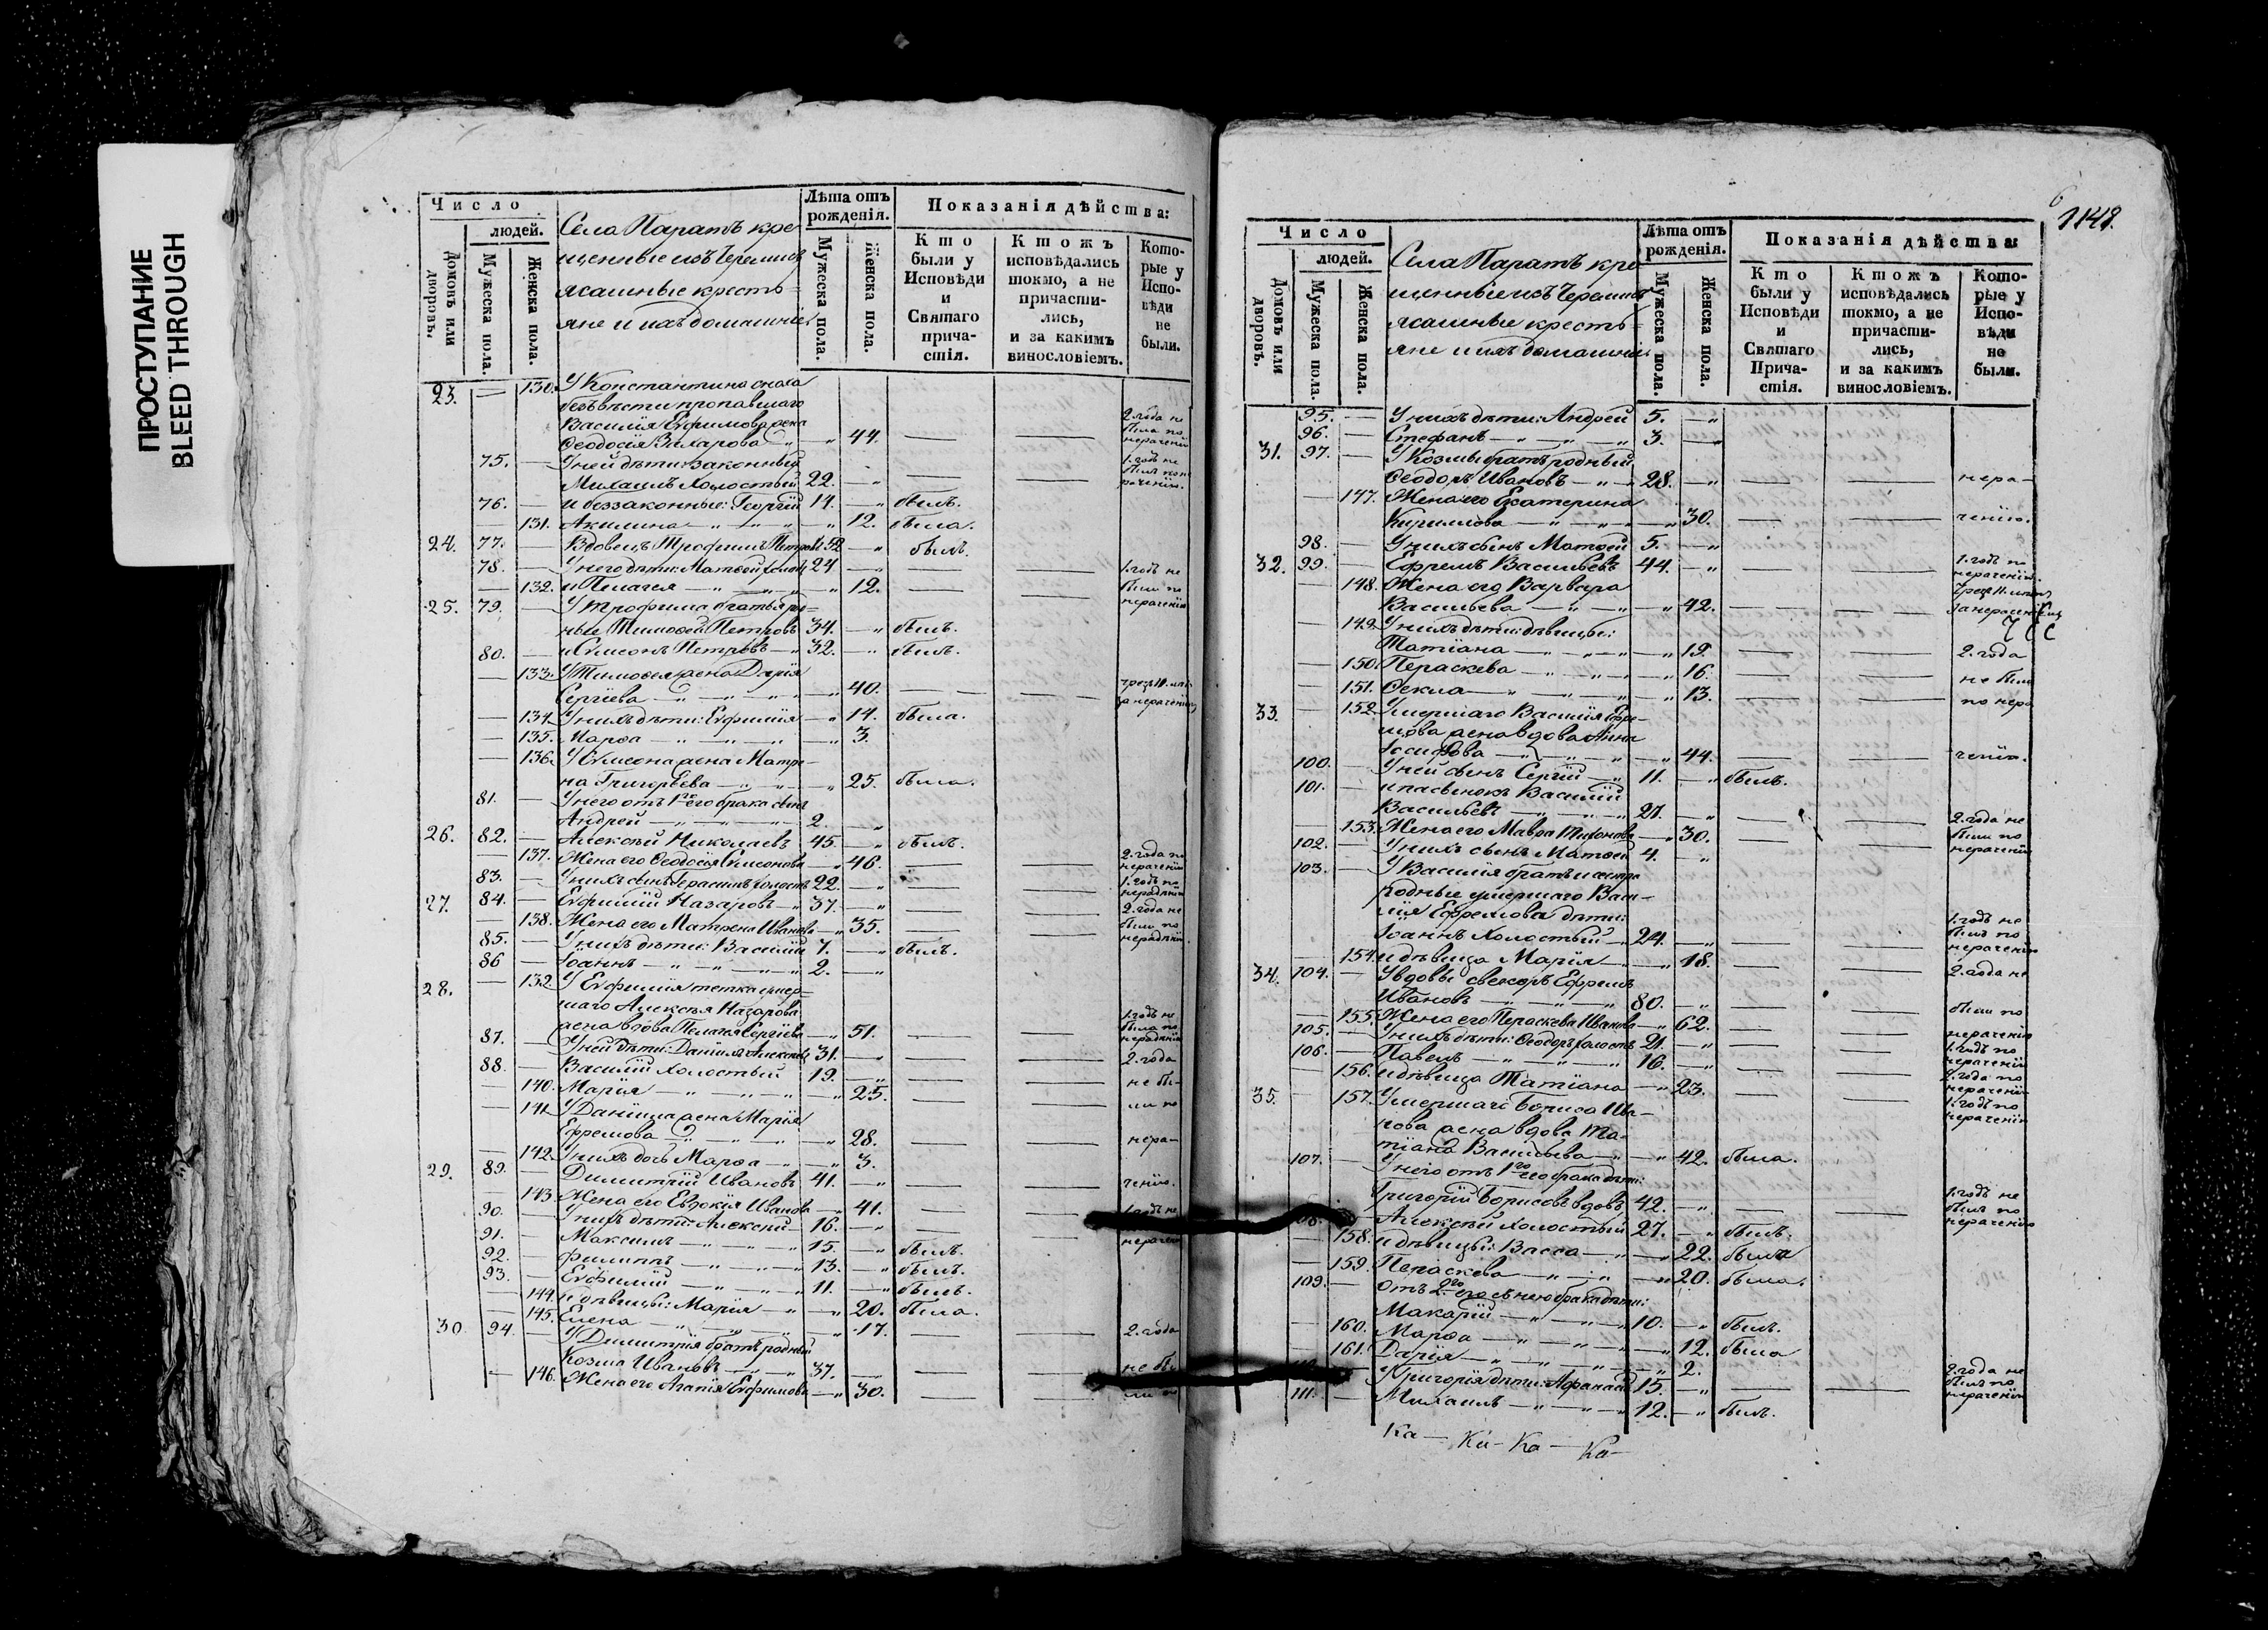 ПРОСТУПАНИЕ
BLEED THROUGH
Число
людей.
Домовъ или дворовъ.
Мужеска пола.
Женска пола.
Села Паратъ кре
щенные изъ Черемисъ
ясашные кресть=
яне и ихъ домашніе
Лѣта отъ рожденія.
Мужеска пола.
Женска пола.
Показанія дѣйства:
Кто были у Исповѣди и Святаго причастія.
Ктожъ исповѣдались токмо, а не причастились, и за какимъ винословіемъ.
Которые у Исповѣди не были.
23. — 130. У Константина сноха
безъ вѣсти пропавшаго
Василія Евфимова жена
Ѳеодосія Захарова „ 44. — — 2. года не была по нераченію
75. — У ней дѣти: законный
Михаилъ холостый 22. „ — — 1. годъ не былъ по нераченію.
76. — и беззаконные: Георгій 14. — „ былъ.
— 131. Акилина — „ — „ — „ 12. была.
24. 77. — Вдовецъ Трофимъ Петровъ 52 — „ былъ.
78. — У него дѣти: Матвей холост 24 — „ — — 1. годъ не
— 132. и Пелагея — „ — „ 12. — — были по нераченію
25. 79. — У Трофима братья род=
ные Тимофей Петровъ 34. — „ былъ.
80. — и Симеонъ Петровъ — „ 32. — „ былъ.
— 133. У Тимофея жена Дарія
Сергіева — „ — „ 40. — —
— 134. У нихъ дѣти: Евфимія — „ 14. была.
— 135. Марѳа — „ — „ — „ 3.
— 136. У Симеона жена Матре-
на Григорьева — „ — „ 25. была.
81. — У него отъ 1го его брака сынъ
Андрей — „ — „ — 2. — „
26. 82. — Алексѣй Николаевъ 45. — „ былъ.
— 137. Жена его Ѳеодосія Симеонова — „ 46. — — 2. года по нераченію
83. — У нихъ сынъ Герасимъ холостъ 22. — „ — — 1. годъ по нерадѣнію
27. 84. — Евфимій Назаровъ — „ 37. — „ — — 2. года не
— 138. Жена его Матрена Иванова — „ 35. — — были по нерадѣнію.
85. — У нихъ дѣти: Василій 7. — „ былъ.
86 — Іоаннъ — „ — „ — „ 2. — „
28. — 132. У Евфимія тетка умер=
шаго Алексѣя Назарова
жена вдова Пелагея Сергіева — „ 51. — — 1. годъ не была по нерадѣнію
87. — У ней дѣти: Даніилъ Алексѣевъ 31. — „ — — 2. года
88. — Василій холостый 19. — „ — — не бы-
— 140. Марія — „ — „ — „ 25. — — ли по
— 141. У Даніила жена Марія
Ефремова — „ — „ — „ 28. — — нера-
— 142. У нихъ дочь Марѳа — „ — „ 3.
29. 89. — Димитрій Ивановъ 41. — „ — — ченію.
— 143. Жена его Евдокія Иванова — „ 41. — — 1. годъ не
90. — У нихъ дѣти: Алексій — 16. — „ — — нерачен
91. — Максимъ — „ — „ — „ 15. — „ былъ.
92. — Филиппъ — „ — „ — „ 13. — „ былъ.
93. — Евфимій — „ — „ — „ 11. — „ былъ.
— 144. и дѣвицы: Марія — „ — „ 20. была.
— 145. Елена — „ — „ — „ 17. — — 2. года
30. 94. — У Димитрія братъ родный
Козма Ивановъ — „ — „ 37. — — не бы
— 146. Жена его Агапія Евфимова — „ 30. — — ли по
6
1148.
Число
людей.
Домовъ или дворовъ.
Мужеска пола.
Женска пола.
Села Паратъ кре
щенные изъ Черемисъ
ясашные кресть=
яне и ихъ домашніе
Лѣта отъ рожденія.
Мужеска пола.
Женска пола.
Показанія дѣйства:
Кто были у Исповѣди и Святаго Причастія.
Ктожъ исповѣдались токмо, а не причастились, и за какимъ винословіемъ.
Которые у Исповѣди не были.
95. — У нихъ дѣти: Андрей 5. — „
96. — Стефанъ — „ — „ — „ 3. — „
31. 97. — У Козмы братъ родный
Ѳеодоръ Ивановъ — „ — „ 28. — „ — — нера-
— 147. Жена его Екатерина
Кирилова — „ — „ — „ 30. — — ченію.
98. — У нихъ сынъ Матвей 5. — „
32. 99. — Ефремъ Васильевъ 44. — „ — — 1. годъ по нераченію.
— 148. Жена его Варвара
Васильева — „ — „ — „ 42. — —
— 149. У нихъ дѣти: дѣвицы:
Татіана — „ — „ — „ 19. — — 2. года
— 150. Параскева — „ — „ — „ 16. — — не были
— 151. Ѳекла — „ — „ — „ 13. — — по нера
33. — 152. Умершаго Василія Ефре-
мова жена вдова Анна
Іосифова — „ — „ — „ 44. — — ченію.
100. — У ней сынъ Сергій — „ 11. — „ былъ.
101. — и пасынокъ Василій
Васильевъ — „ — „ 21. — „ — — 2. года не
— 153. Жена его Мавра Тихонова — „ 30. — — были по нераченію
102. — У нихъ сынъ Матвей 4. — „
103. — У Василія братъ и сестра
родные умершаго Васи-
лія Ефремова дѣти:
Іоаннъ холостый — „ 24. — „ — — 1. годъ не былъ по нераченію
— 154. и дѣвица Марія — „ 18. — — 2. года не
34. 104. — У вдовы свекоръ Ефремъ
Ивановъ — „ — „ — „ 80. — „ — — были по
— 155. Жена его Пераскева Иванова — „ 62. — — нераченію
105. — У нихъ дѣти: Ѳеодоръ холостъ 21. — „ — — 1. годъ по нераченію
106. — Павелъ — „ — „ — „ 16. — „ — — 2. года по нераченію
— 156. и дѣвица Татіана — „ 23. — — 1. годъ по нераченію
35. — 157. Умершаго Бориса Ива-
нова жена вдова Та-
тіана Васильева — „ — „ 42. была.
107. — У него отъ 1го его брака дѣти:
Григорій Борисовъ вдовъ 42. — „ — — 1. годъ не былъ по нераченію
108. — Алексѣй холостый 27. — „ былъ.
— 158. и дѣвицы: Васса — „ — „ 22. была
— 159. Пераскева — „ — „ — „ 20. была.
109. — отъ 2го его съ нею брака дѣти:
Макарій — „ — „ — „ 10. — „ былъ.
— 160. Марѳа — „ — „ — „ 12. была
— 161. Дарія — „ — „ — „ 2.
У Григорія дѣти: Афанасій 15. — „ — — 2. года не былъ по нераченію
111. — Михаилъ — „ — „ — „ 12. — „ былъ.
Ка — Ка — Ка — Ка —